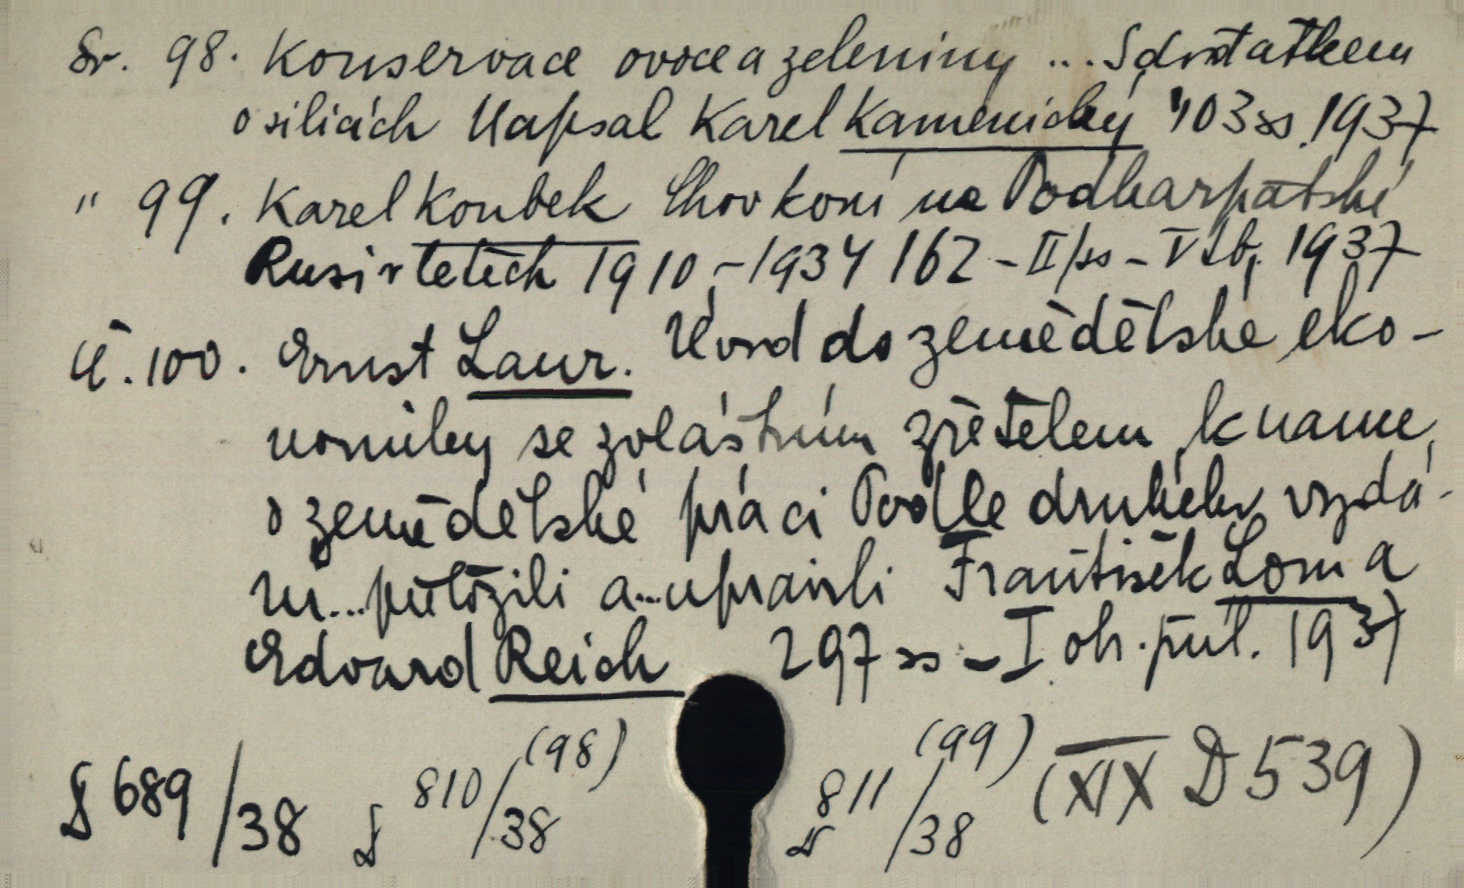 Sv. 98. Konservace ovoce a zeleniny ... S dostatkem
o siliách Napsal Karel Kamenický 403 ss. 1937
" 99. Karel Koubek Chov koní na Podkarpatské
Rusi v letech 1910-1934 162 - II/ss - V tb. 1937
Č. 100. Ernst Laur. Úvod do zemědělské eko-
nomiky se zvláštním zřetelem k nauce
o zemědělské práci Podle druhého vydá-
ní ... přeložili a ... upravili František Lom a
Edvard Reich 297 ss - I obr. příl. 1937
§ 689/38 § 810/38 (98) § 811/38 (99) (XIX D 539)